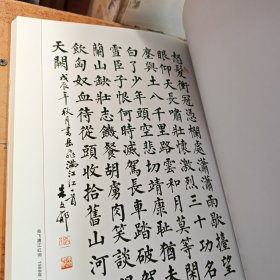 怒髮衝冠憑欄處瀟瀟雨歇擡望
眼仰天長嘯壯懷激烈三十功名
塵與土八千里路雲和月莫等閑
白了少年頭空悲切靖康恥猶未
雪臣子恨何時滅駕長車踏破賀
蘭山缺壯志飢餐胡虜肉笑談渴
飲匈奴血待從頭收拾舊山河朝
天闕
戊辰年秋月書岳飛滿江紅一首
岳飞满江红词 1988年